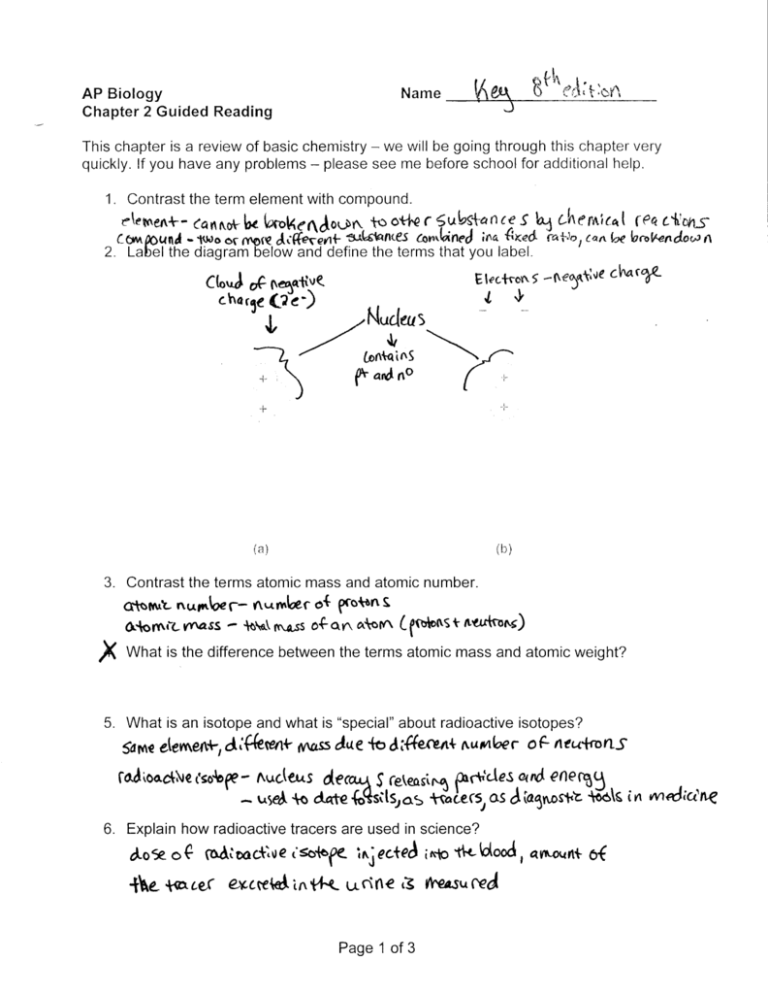 AP Biology
Name Key 8th edition
Chapter 2 Guided Reading
This chapter is a review of basic chemistry – we will be going through this chapter very
quickly. If you have any problems – please see me before school for additional help.
1. Contrast the term element with compound.
element - cannot be broken down to other substances by chemical reactions
compound - two or more different substances combined in a fixed ratio, can be broken down
2. Label the diagram below and define the terms that you label.
Cloud of negative
charge (2e-)
Electrons - negative charge
Nucleus
contains
p+ and n0
+ +
+ +
(a) (b)
3. Contrast the terms atomic mass and atomic number.
atomic number - number of protons
atomic mass - total mass of an atom (protons + neutrons)
X What is the difference between the terms atomic mass and atomic weight?
5. What is an isotope and what is “special” about radioactive isotopes?
same element, different mass due to different number of neutrons
radioactive isotope - nucleus decays releasing particles and energy
- used to date fossils, as tracers, as diagnostic tools in medicine
6. Explain how radioactive tracers are used in science?
dose of radioactive isotope injected into the blood, amount of
the tracer excreted in the urine is measured
Page 1 of 3